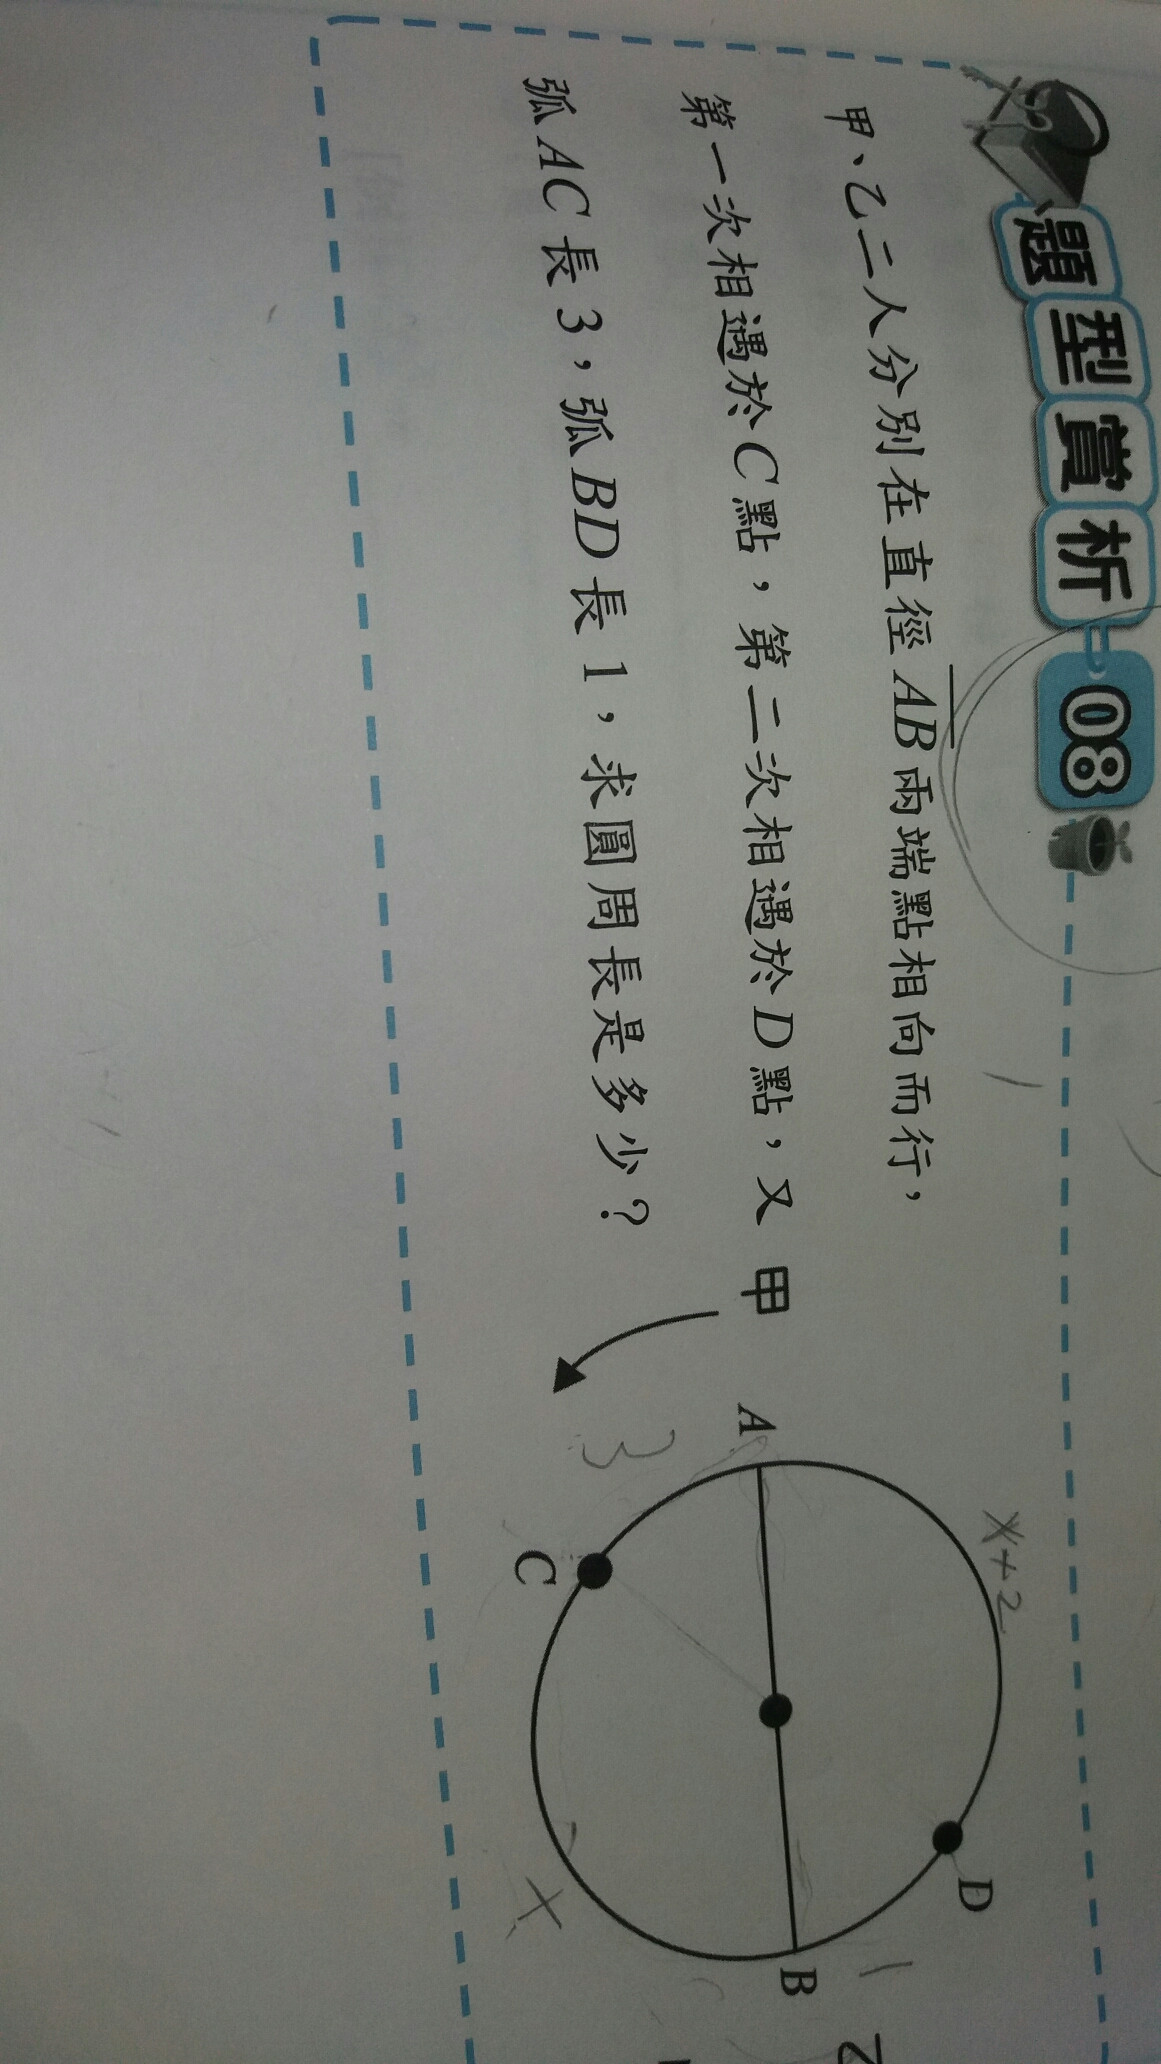 題型賞析 08
甲、乙二人分別在直徑AB兩端點相向而行，
第一次相遇於C點，第二次相遇於D點，又
弧AC長3，弧BD長1，求圓周長是多少？
甲
A
3
C
x+2
D
x
B
1
乙